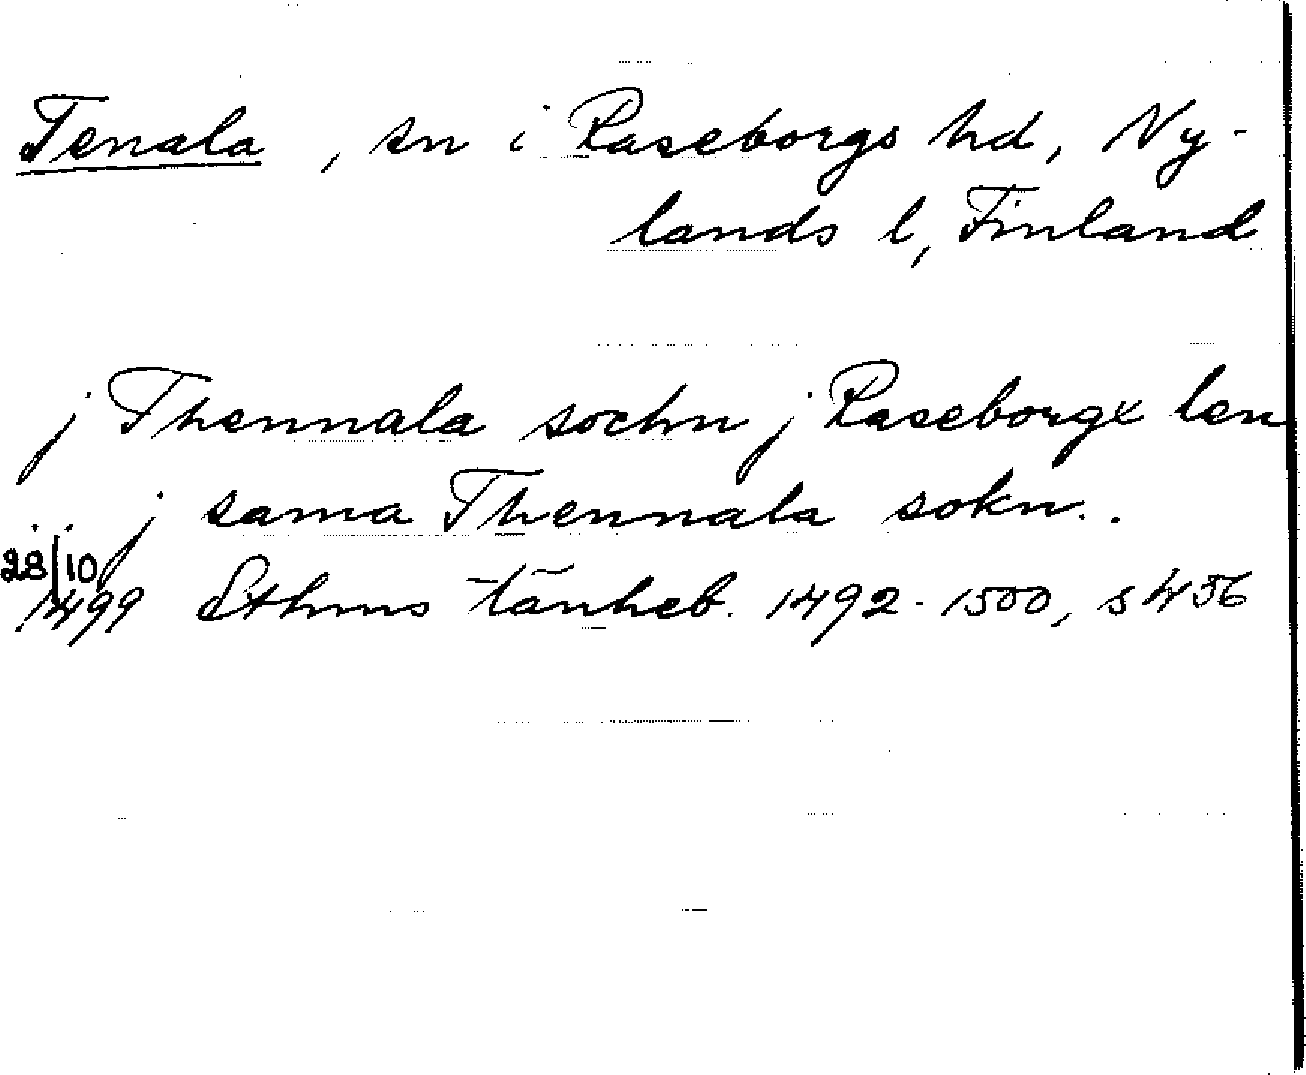 Tenala, sn i Raseborgs hd, Ny-
lands l, Finland
j Thennala sochn j Raseborgx len
j sama Thennala sokn..
28/10
1499 Sthms tänkeb. 1492-1500, s 456